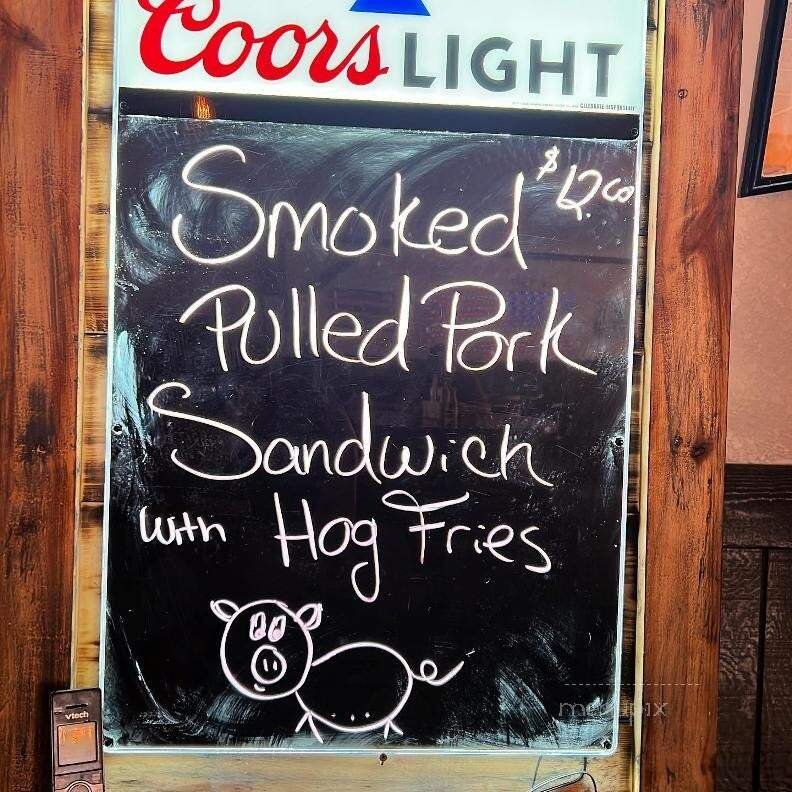 Coors LIGHT
CELEBRATE RESPONSIBLY
$12.00
Smoked
Pulled Pork
Sandwich
with Hog Fries
vtech
menupix